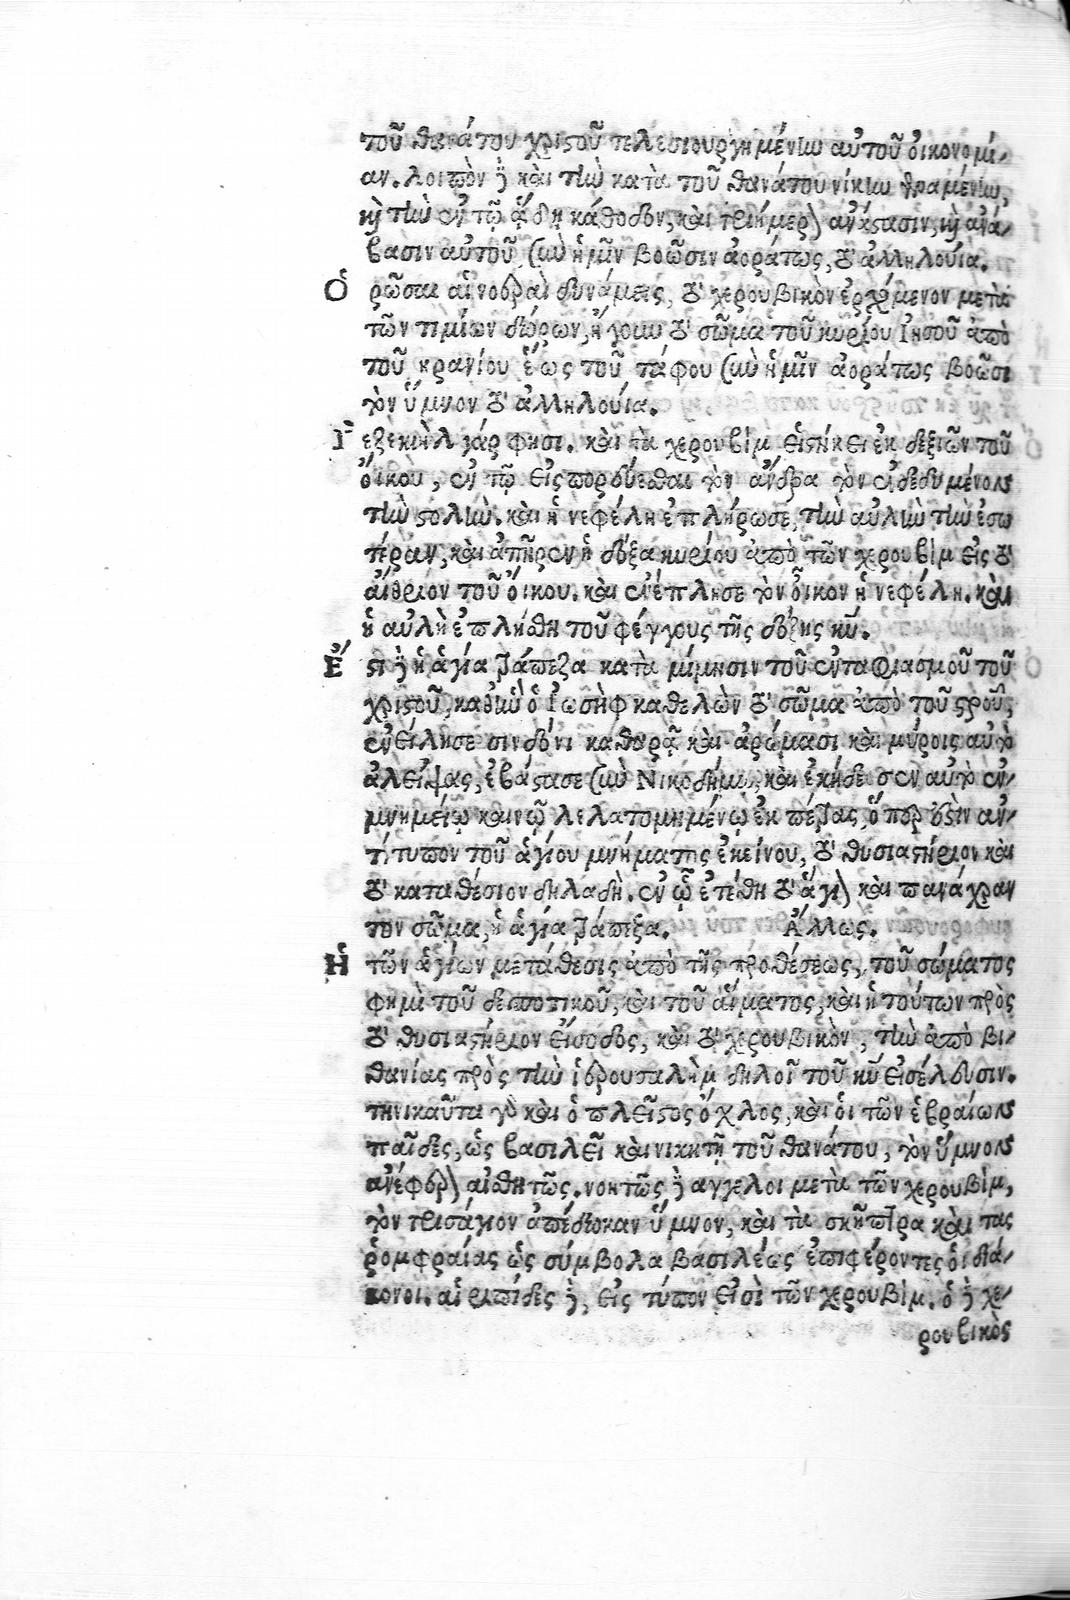 τοῦ θανάτου χριστοῦ τελεσιουργημένην αὐτοῦ οἰκονομί-
αν. λοιπὸν δὲ καὶ τὴν κατὰ τοῦ θανάτου νίκην
καὶ τὴν ἐν τῷ ᾅδῃ κάθοδον, καὶ τριήμερον ἀνάστασιν, καὶ ἀνά-
βασιν αὐτοῦ, σὺν ἡμῖν βοῶσιν ἀοράτως, τὸ ἀλληλούια.
Ὁρῶσαι αἱ νοεραὶ δυνάμεις, τὸ χερουβικὸν ἐρχόμενον μετὰ
τῶν τιμίων δώρων, ἤγουν τὸ σῶμα τοῦ κυρίου Ἰησοῦ ἀπὸ
τοῦ κρανίου ἕως τοῦ τάφου σὺν ἡμῖν ἀοράτως βοῶσι
τὸν ὕμνον τὸ ἀλληλούια.
Ἰεζεκιὴλ γάρ φησι. καὶ τὰ χερουβὶμ εἱστήκει ἐκ δεξιῶν τοῦ
οἴκου, ἐν τῷ εἰσπορεύεσθαι τὸν ἄνδρα τὸν ἐνδεδυμένον
τὴν στολήν. καὶ ἡ νεφέλη ἐπλήρωσε, τὴν αὐλὴν τὴν ἐσω
τέραν, καὶ ἀπῆρεν ἡ δόξα κυρίου ἀπὸ τῶν χερουβὶμ εἰς τὸ
αἴθριον τοῦ οἴκου. καὶ ἐνέπλησε τὸν οἶκον ἡ νεφέλη. καὶ
ἡ αὐλὴ ἐπλήσθη τοῦ φέγγους τῆς δόξης κυ̅.
Ἔστι δὲ ἡ ἁγία τράπεζα κατὰ μίμησιν τοῦ ἐνταφιασμοῦ τοῦ
χριστοῦ, καθὼς ὁ Ἰωσὴφ καθελὼν τὸ σῶμα ἀπὸ τοῦ σταυροῦ,
ἐνείλησε σινδόνι καθαρᾷ καὶ ἀρώμασι καὶ μύροις αὐτὸ
ἀλείψας, ἐβάστασε σὺν Νικοδήμῳ, καὶ ἐκήδευσεν αὐτὸ ἐν
μνημείῳ καινῷ λελατομημένῳ ἐκ πέτρας, ὅπερ ἐστὶν ἀν-
τίτυπον τοῦ ἁγίου μνήματος ἐκείνου, τὸ θυσιαστήριον καὶ
τὸ καταθέσιον δηλαδὴ. ἐν ᾧ ἐτέθη τὸ ἅγιον καὶ πανάχραν
τον σῶμα, ἡ ἁγία τράπεζα. Ἄλλως.
Ἡ τῶν ἁγίων μετάθεσις ἀπὸ τῆς προθέσεως, τοῦ σώματος
φημὶ τοῦ δεσποτικοῦ, καὶ τοῦ αἵματος, καὶ ἡ τούτων πρὸς
τὸ θυσιαστήριον εἴσοδος, καὶ τὸ χερουβικὸν, τὴν ἀπὸ βι-
θανίας πρὸς τὴν ἱερουσαλὴμ δηλοῖ τοῦ κυ̅ εἰσέλευσιν.
τηνικαῦτα γὰρ καὶ ὁ πλεῖστος ὄχλος, καὶ οἱ τῶν ἑβραίων
παῖδες, ὡς βασιλεῖ καὶ νικητῇ τοῦ θανάτου, τὸν ὕμνον
ἀνέφερον αἰσθητῶς. νοητῶς δὲ αγγελοι μετὰ τῶν χερουβὶμ,
τὸν τρισάγιον ἀπέδωκαν ὕμνον, καὶ τὰ σκῆπτρα καὶ τας
ῥομφαίας ὡς σύμβολα βασιλέως ἐπιφέροντες οἱ διά-
κονοι. αἱ ριπίδες δὲ, εἰς τύπον εἰσὶ τῶν χερουβὶμ. ὁ δὲ χε-
ρουβικὸς